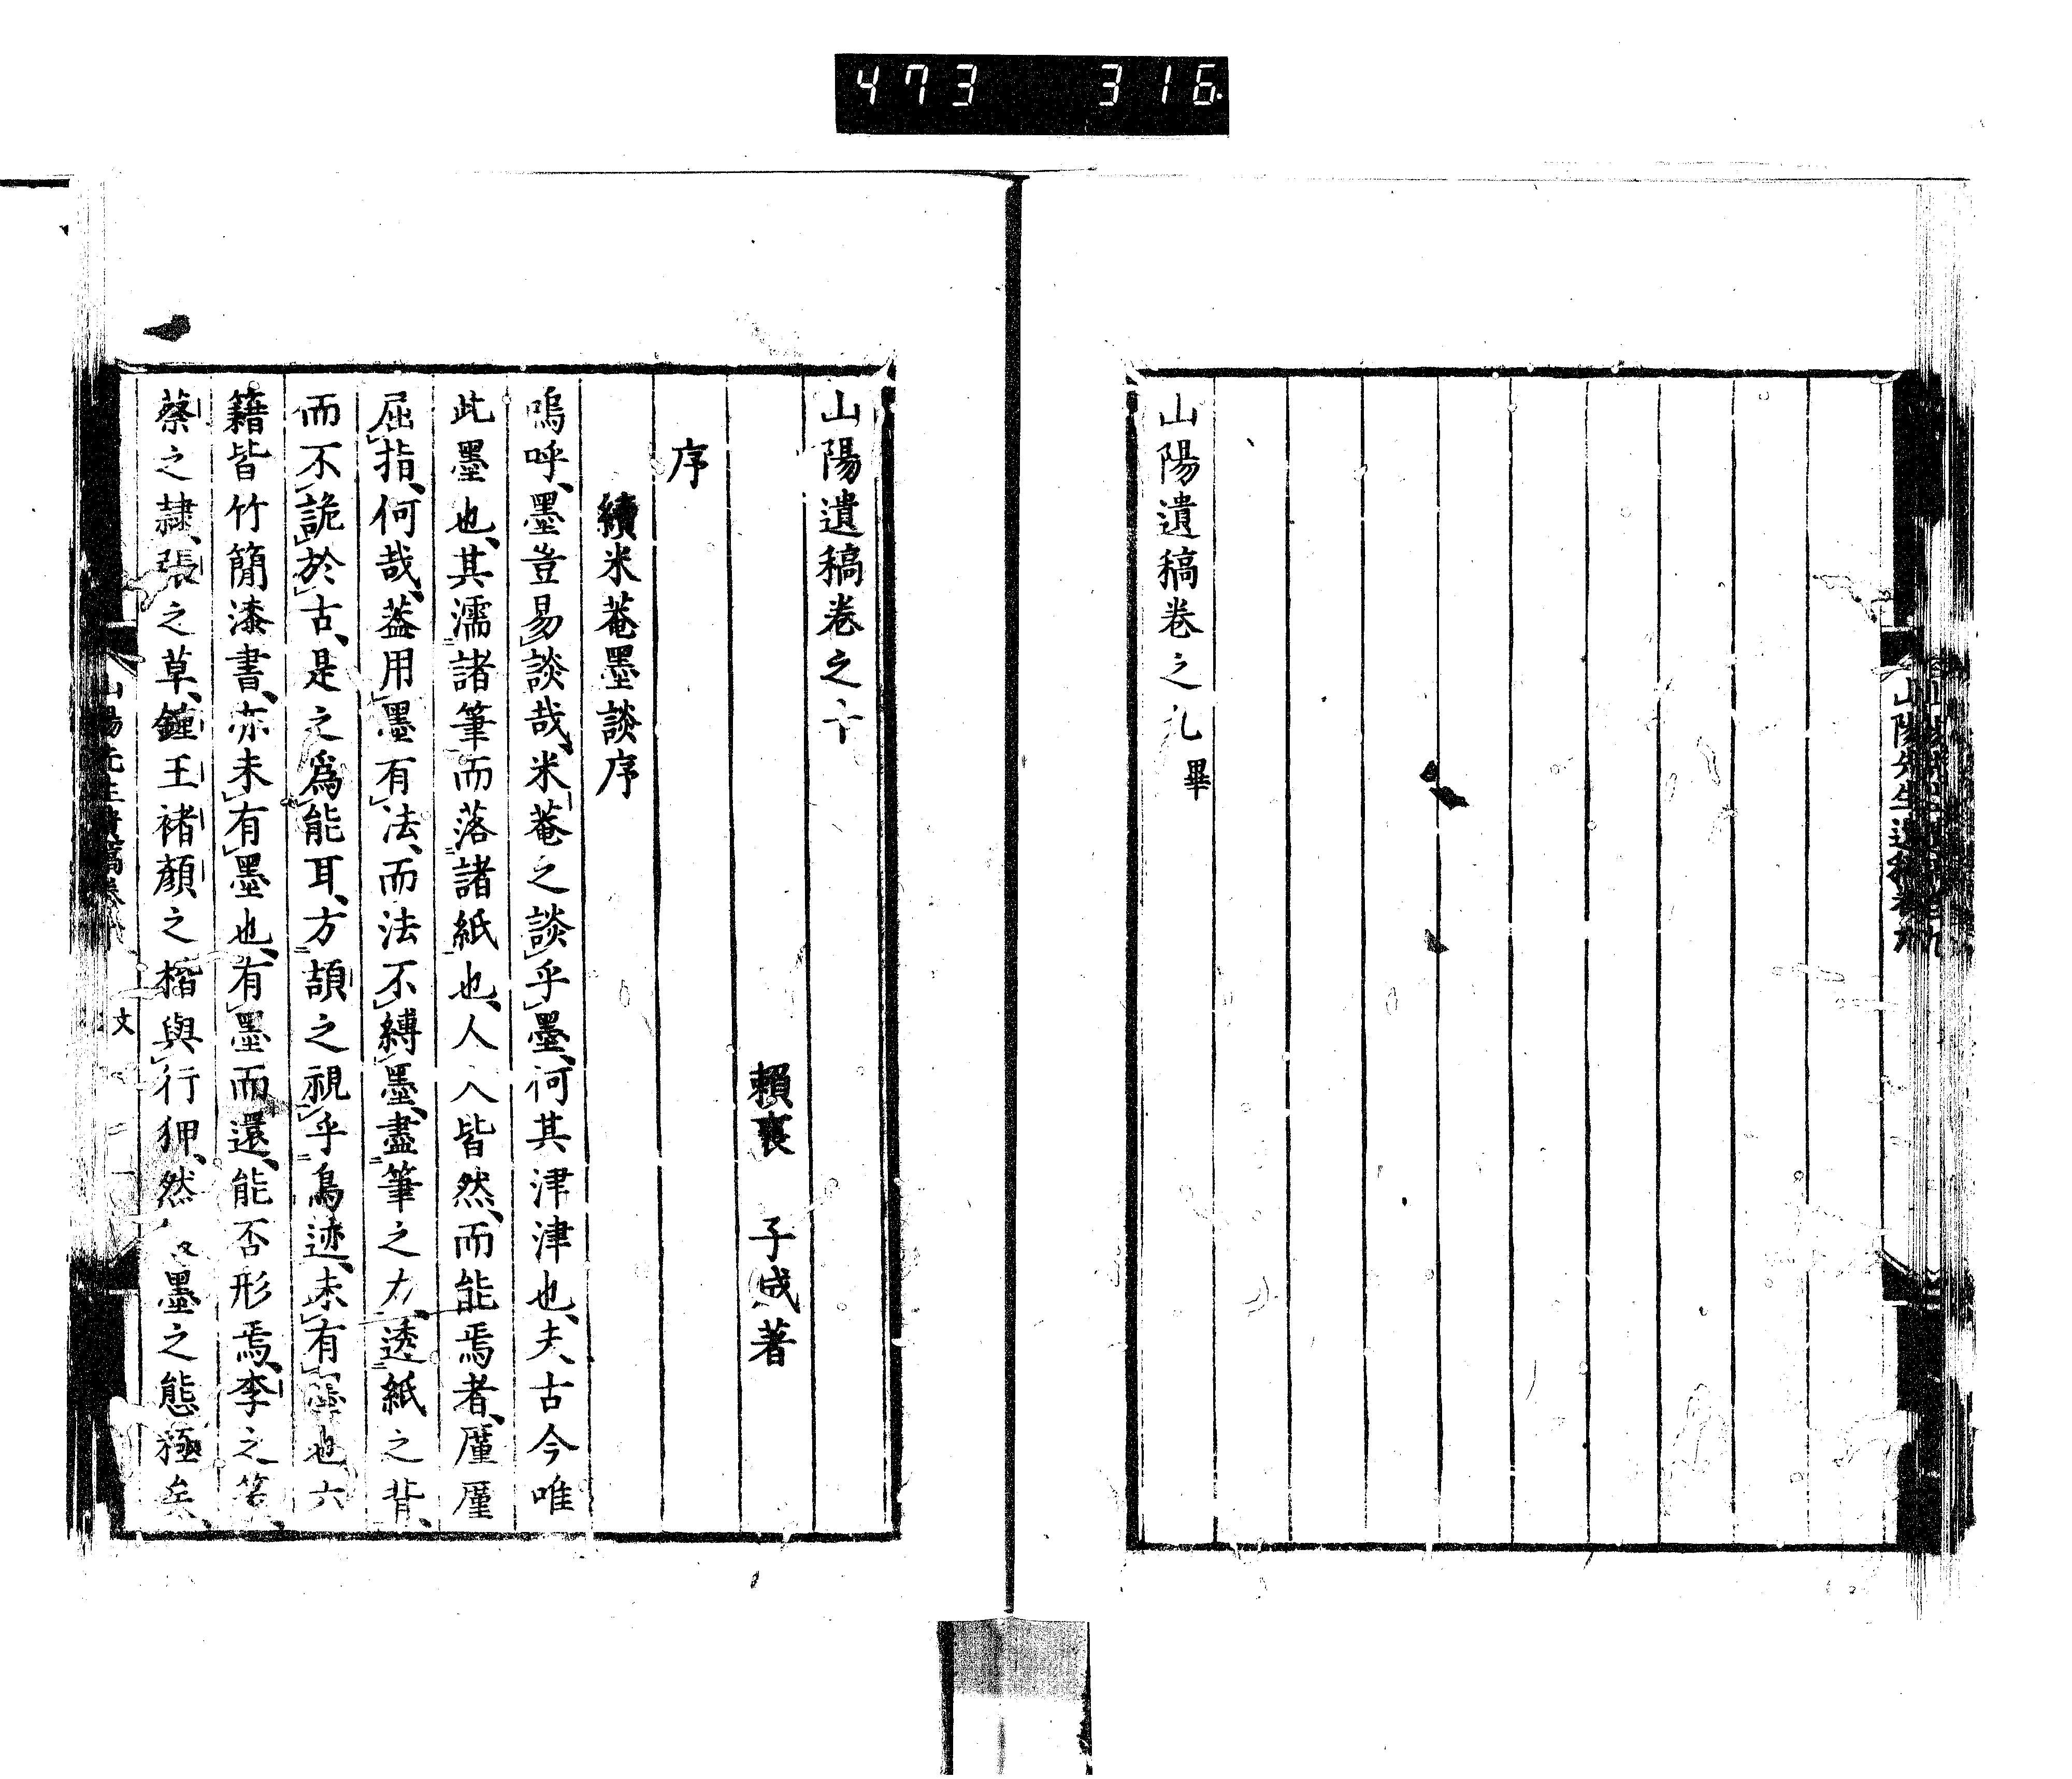 473 316
山陽遺稿卷之九畢
山陽先生遺稿卷九
山陽遺稿卷之十
賴襄 子成著
序
續米菴墨談序
嗚呼、墨豈易談哉、米菴之談乎墨、何其津津也、夫古今唯
此墨也、其濡諸筆而落諸紙也、人人皆然、而能焉者、厪厪
屈指、何哉、蓋用墨有法、而法不縛墨、盡筆之力、透紙之背、
而不詭於古、是之爲能耳、方頡之視乎鳥迹、未有墨也六
籍皆竹簡漆書、亦未有墨也、有墨而還、能否形焉、李之篆、
蔡之隷、張之草、鍾王褚顏之楷與行狎、然 墨之態極矣、
山陽先生遺稿卷 文